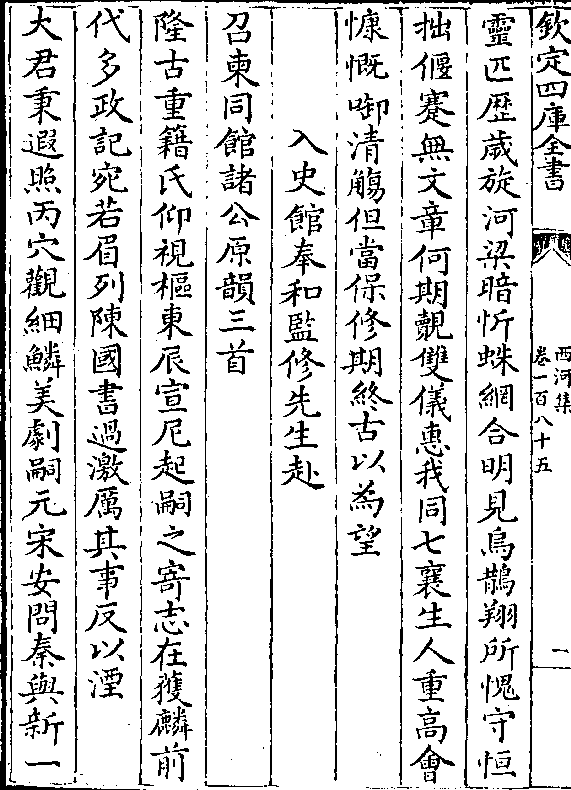 欽定四庫全書
西河集
卷一百八十五
一
靈匹歴歲旋河梁暗忻蛛網合明見烏鵲翔所愧守恒
拙偃蹇無文章何期覿雙儀惠我同七襄生人重高會
慷慨啣清觴但當保修期終古以為望
入史館奉和監修先生赴
召柬同館諸公原韻三首
隆古重籍氏仰視樞東辰宣尼起嗣之寄志在獲麟前
代多政記宛若眉列陳國書過激厲其事反以湮
大君秉遐照丙穴觀細鱗美劇嗣元宋安問秦與新一